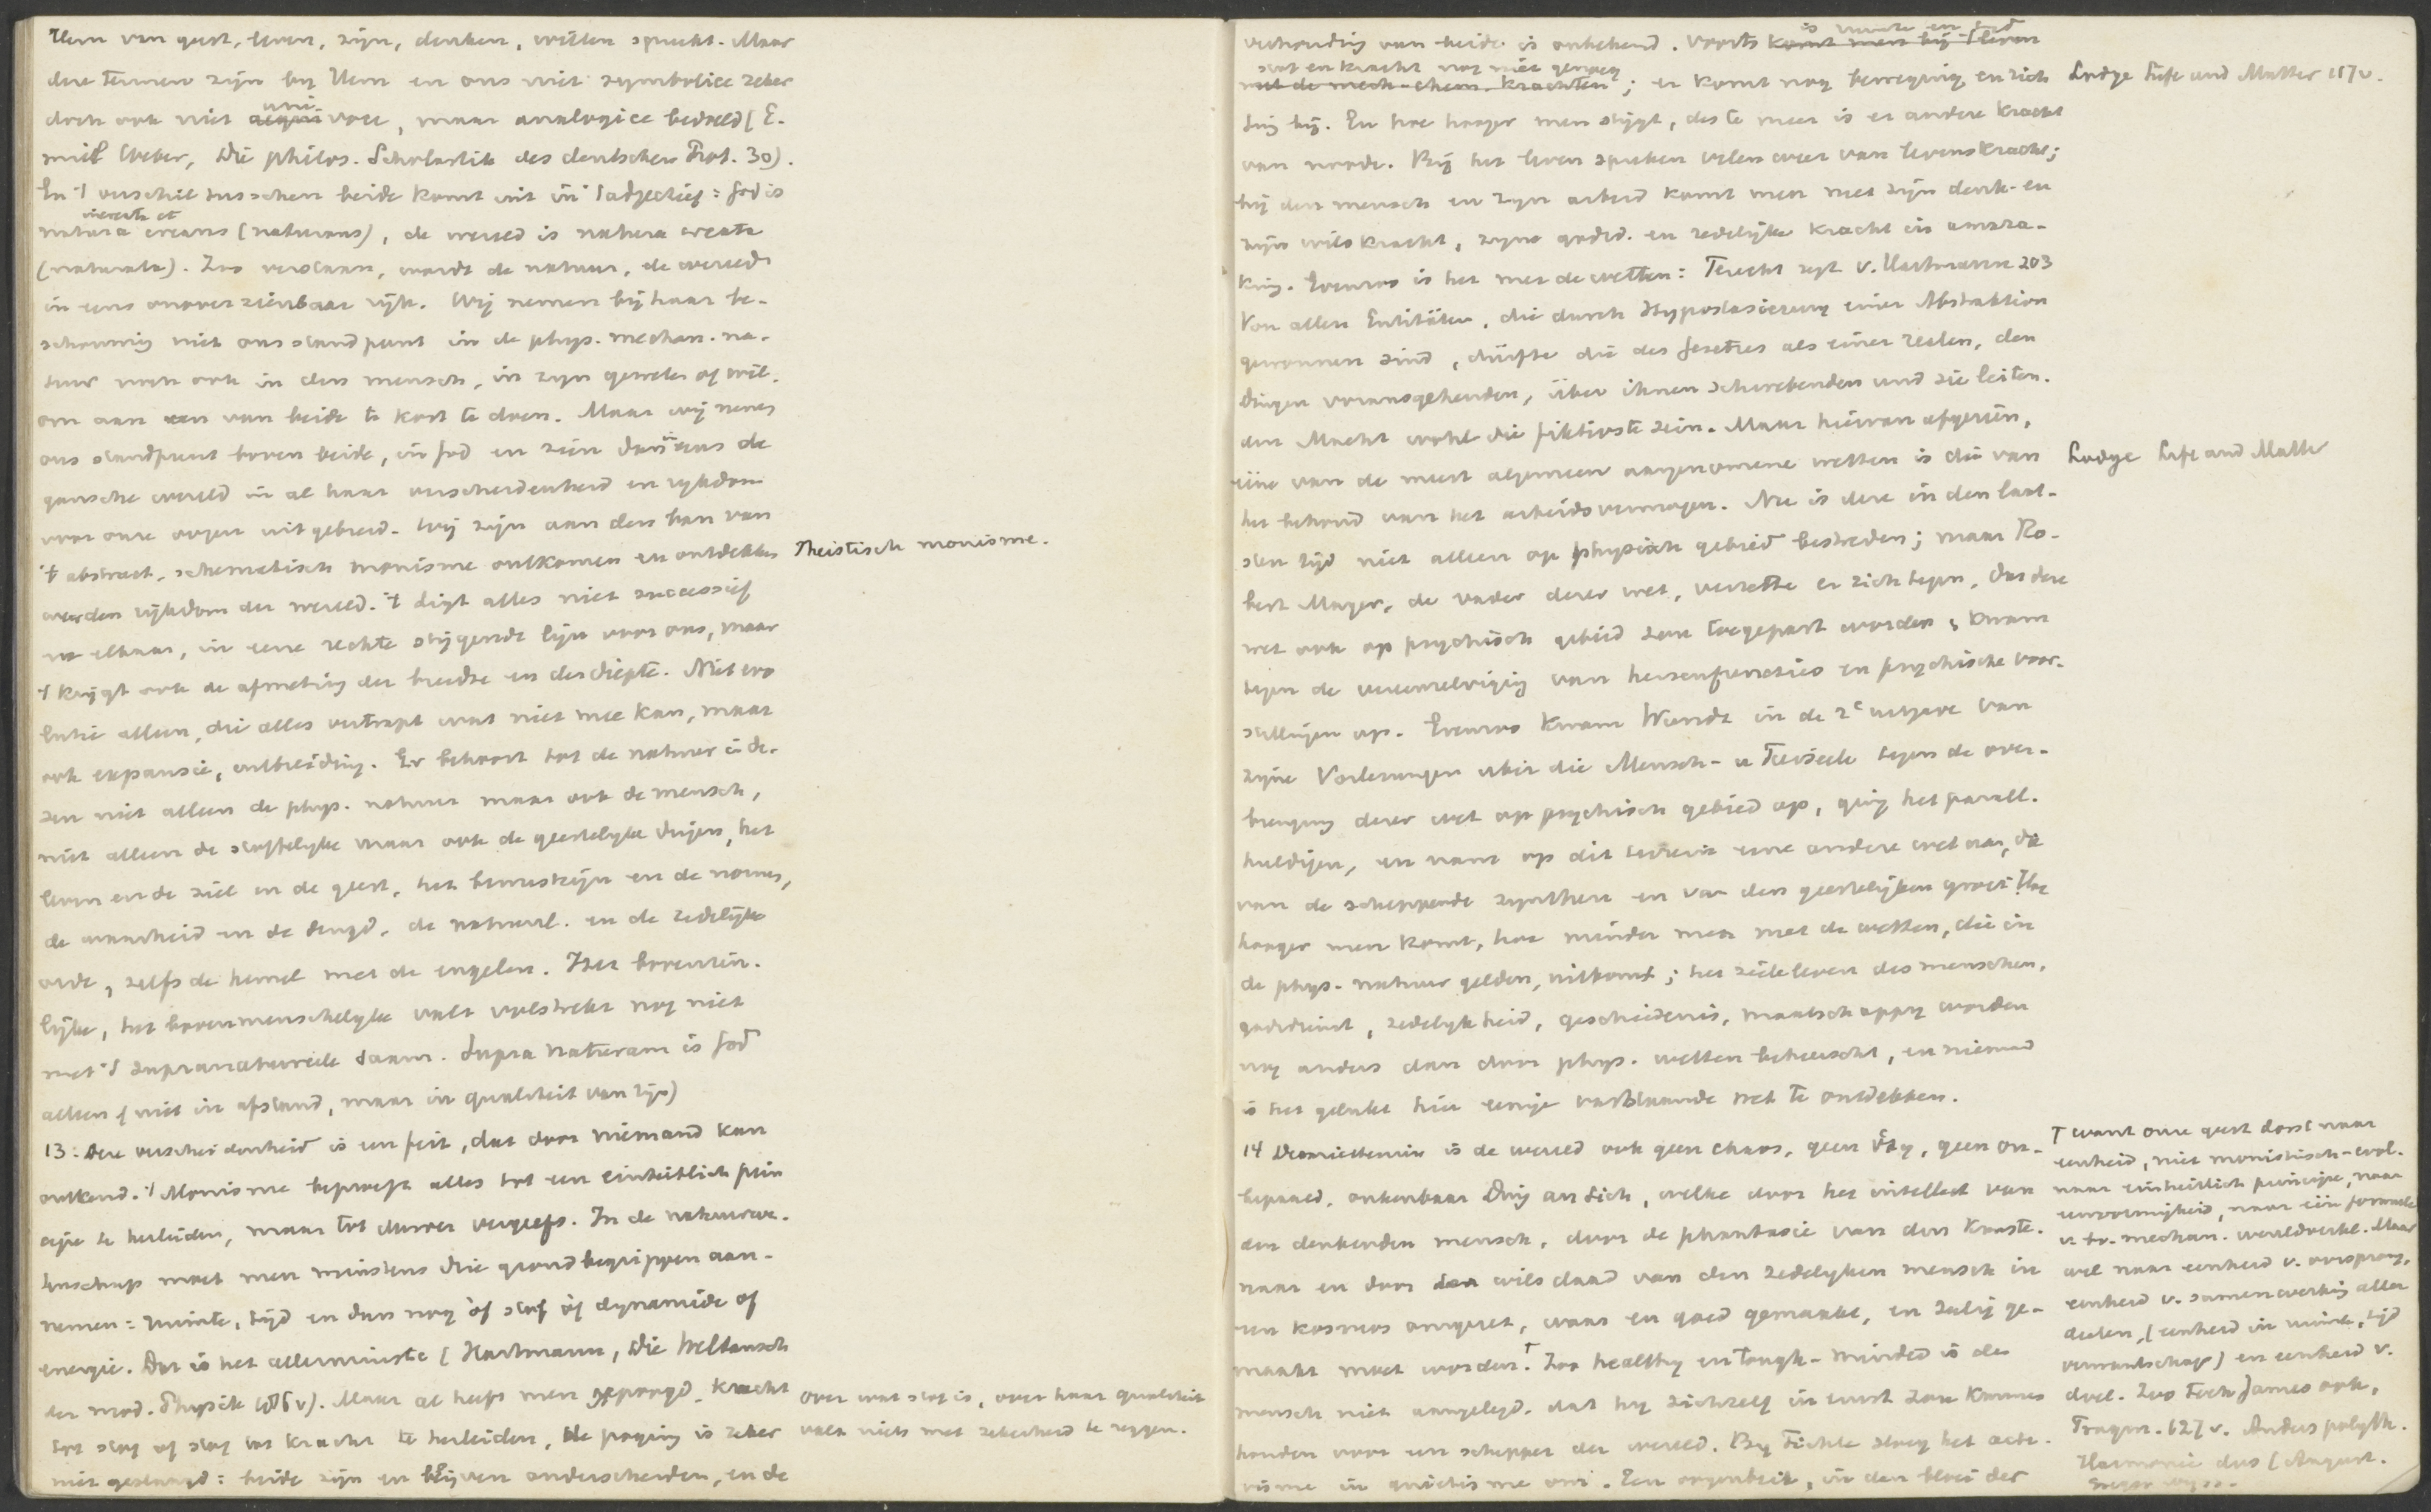 Hem van geest, leven, zijn, denken, willen spreekt. Maar
deze termen zijn bij Hem en ons niet symbolice zeker
doch ook niet univoce, maar analogice bedoeld (E.
mil Weber, Die philos. Scholastik des deutschen Prot. 30).
En 't verschil tusschen beide komt uit in 't adjectief: God is
natura increata et creans (naturans), de wereld is natura creata
(naturata). Zoo verstaan, wordt de natuur, de wereld
in eens onoverzienbaar rijk. Wij nemen bij haar be-
schouwing niet ons standpunt in de phys. mechan. na-
tuur noch ook in den mensch, in zijn geweten of wil,
om aan een van beide te kort te doen. Maar wij nemen
ons standpunt boven beide, in God en zien dan ineens de
gansche wereld in al haar verscheidenheid en rijkdom
voor onze oogen uitgebreid. Wij zijn aan den ban van
't abstract, schematisch monisme ontkomen en ontdekken
weer den rijkdom der wereld. 't Ligt alles niet successief
na elkaar, in eene rechte stijgende lijn voor ons, maar
't krijgt ook de afmeting der breedte en der diepte. Niet evo
lutie alleen, die alles vertrapt wat niet mee kan, maar
ook expansie, uitbreiding. Er behoort tot de natuur in de-
zen niet alleen de phys. natuur maar ook de mensch,
niet alleen de stoffelijke maar ook de geestelijke dingen, het
leven en de ziel en de geest, het bewustzijn en de normen,
de waarheid en de deugd, de natuurl. en de zedelijke
orde, zelfs de hemel met de engelen. Het bovenzin-
lijke, het bovenmenschelijke valt volstrekt nog niet
met 't supranatureele saam. Supra naturam is God
alleen (niet in afstand, maar in qualiteit van zijn)
13. Deze verscheidenheid is een feit, dat door niemand kan
ontkend. 't Monisme beproeft alles tot een einheitlich prin
cipe te herleiden, maar tot dusver vergeefs. In de natuurwe-
tenschap moet men minstens drie grondbegrippen aan-
nemen: ruimte, tijd en dan nog òf stof òf dynamide of
energie. Dat is het allerminste (Hartmann, Die Weltansch
der mod. Physik v). Maar al heeft men gepoogd, kracht
tot stof of stof tot kracht te herleiden, de poging is zeker
niet geslaagd: beide zijn en blijven onderscheiden, en de
Theistisch monisme.
over wat stof is, over haar qualiteit
valt niets met zekerheid te zeggen.
verhouding van beide is onbekend. Voorts is ruimte en tijd
stof en kracht nog niet genoeg; er komt nog beweging en rich
ting bij. En hoe hooger men stijgt, des te meer is er andere kracht
van noode. Bij het leven spreken velen weer van levenskracht;
bij den mensch en zijn arbeid komt men met zijn denk- en
zijn wilskracht, zijne godsd. en zedelijke kracht in aanra-
king. Evenzoo is het met de wetten: Terecht zegt v. Hartmann 203
Von allen Entitäten, die durch Hypostasierung einer Abstraktion
gewonnen sind, dürfte die des Gesetzes als einer realen, den
Dingen vorausgehenden, über ihnen schwebenden und sie leiten-
den Macht wohl die fiktivste sein. Maar hiervan afgezien,
eene van de meest algemeen aangenomene wetten is die van
het behoud van het arbeidsvermogen. Nu is deze in den laat-
sten tijd niet alleen op physisch gebied bestreden; maar Ro-
bert Mayer, de vader dezer wet, verzette er zich tegen, dat deze
wet ook op psychisch gebied zou toegepast worden, kwam
tegen de vereenzelviging van hersenfuncties en psychische voor-
stellingen op. Evenzoo kwam Wundt in de 2e uitgave van
zijne Vorlesungen über die Mensch- u Tierseele tegen de over-
brenging dezer wet op psychisch gebied op, ging het parall.
huldigen, en nam op dit terrein eene andere wet aan, die
van de scheppende synthese en van den geestelijken groei. Hoe
hooger men komt, hoe minder men met de wetten, die in
de phys. natuur gelden, uitkomt; het zieleleven des menschen,
godsdienst, zedelijkheid, geschiedenis, maatschappij worden
nog anders dan door phys. wetten beheerscht, en niemand
is het gelukt hier eenige vaststaande wet te ontdekken.
14 Desniettemin is de wereld ook geen chaos, geen ὕλη, geen on-
bepaald, onkenbaar Ding an sich, welke door het intellect van
den denkenden mensch, door de phantasie van den kunste-
naar en door de wilsdaad van den zedelijken mensch in
een kosmos omgezet, waar en goed gemaakt, en zalig ge-
maakt moet worden.† Zoo healthy en tough-minded is de
mensch niet aangelegd, dat hij zichzelf in ernst zou kunnen
houden voor een schepper der wereld. Bij Fichte sloeg het acti-
visme in quietisme om. Een oogenblik, in den bloei der
Lodge Life and Matter 157 v.
Lodge Life and Matter
† want onze geest dorst naar
eenheid, niet monistisch-evol.
naar einheitlich principe, naar
eenvormigheid, naar één formule
mechan. wereldverkl. Maar
wel naar eenheid v. oorsprong,
eenheid v. samenwerking aller
deelen, (eenheid in ruimte, tijd
verwantschap) en eenheid v.
doel. Zoo toch James ook,
Pragm. 127 v. Anders polyth.
Harmonie dus (August.